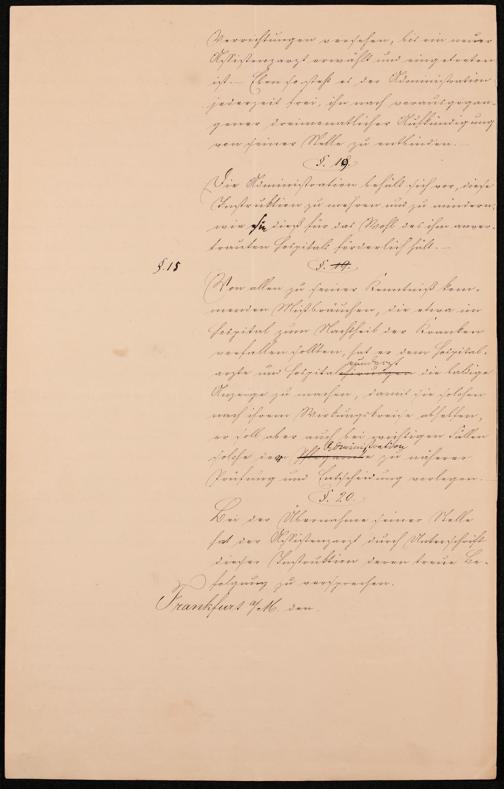 Verrichtungen versehen, bis ein neuer
Assistenzarzt erwählt und eingetreten
ist. — Eben so steht es der Administration
jederzeit frei, ihn nach vorausgegan-
gener, dreimonatlicher Aufkündigung
von seiner Stelle zu entbinden. —
§. 19.
Die Administration behält sich vor, diese
Instruktion zu mehren und zu mindern,
wie sie dieß für das Wohl des ihr anver-
trauten Hospitals förderlich hält. —
§. 15
§. 19.
Von allen zu seiner Kenntniß kom-
menden Mißbräuchen, die etwa im
Hospital zum Nachtheil der Kranken
vorfallen sollten, hat er dem Hospital-
arzte und Hospital die baldige
Anzeige zu machen, damit sie solchen
nach ihrem Wirkungskreise abhelfen,
er soll aber auch bei wichtigen Fällen
Administration
solche der zu näherer
Prüfung und Entscheidung vorlegen.
§. 20.
Bei der Übernahme seiner Stelle
hat der Assistenzarzt durch Unterschrift
dieser Instruktion deren treue Be-
folgung zu versprechen.
Frankfurt a/M. den